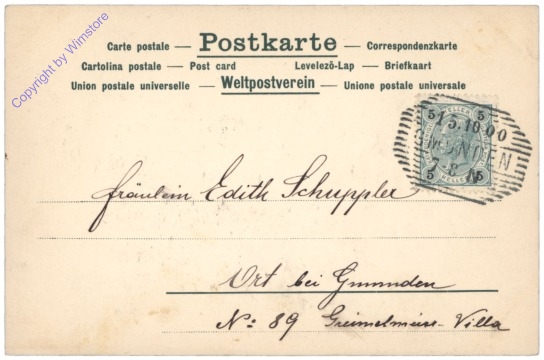 Carte postale — Postkarte — Correspondenzkarte
Cartolina postale — Post card Levelező-Lap — Briefkaart
Union postale universelle — Weltpostverein — Unione postale universale
Copyright by Wimstore
5 5
15.10.00
MUNDEN
7-8 N
5 5
HELLER
Fräulein Edith Schuppler
Ort bei Gmunden
No: 89 Villa